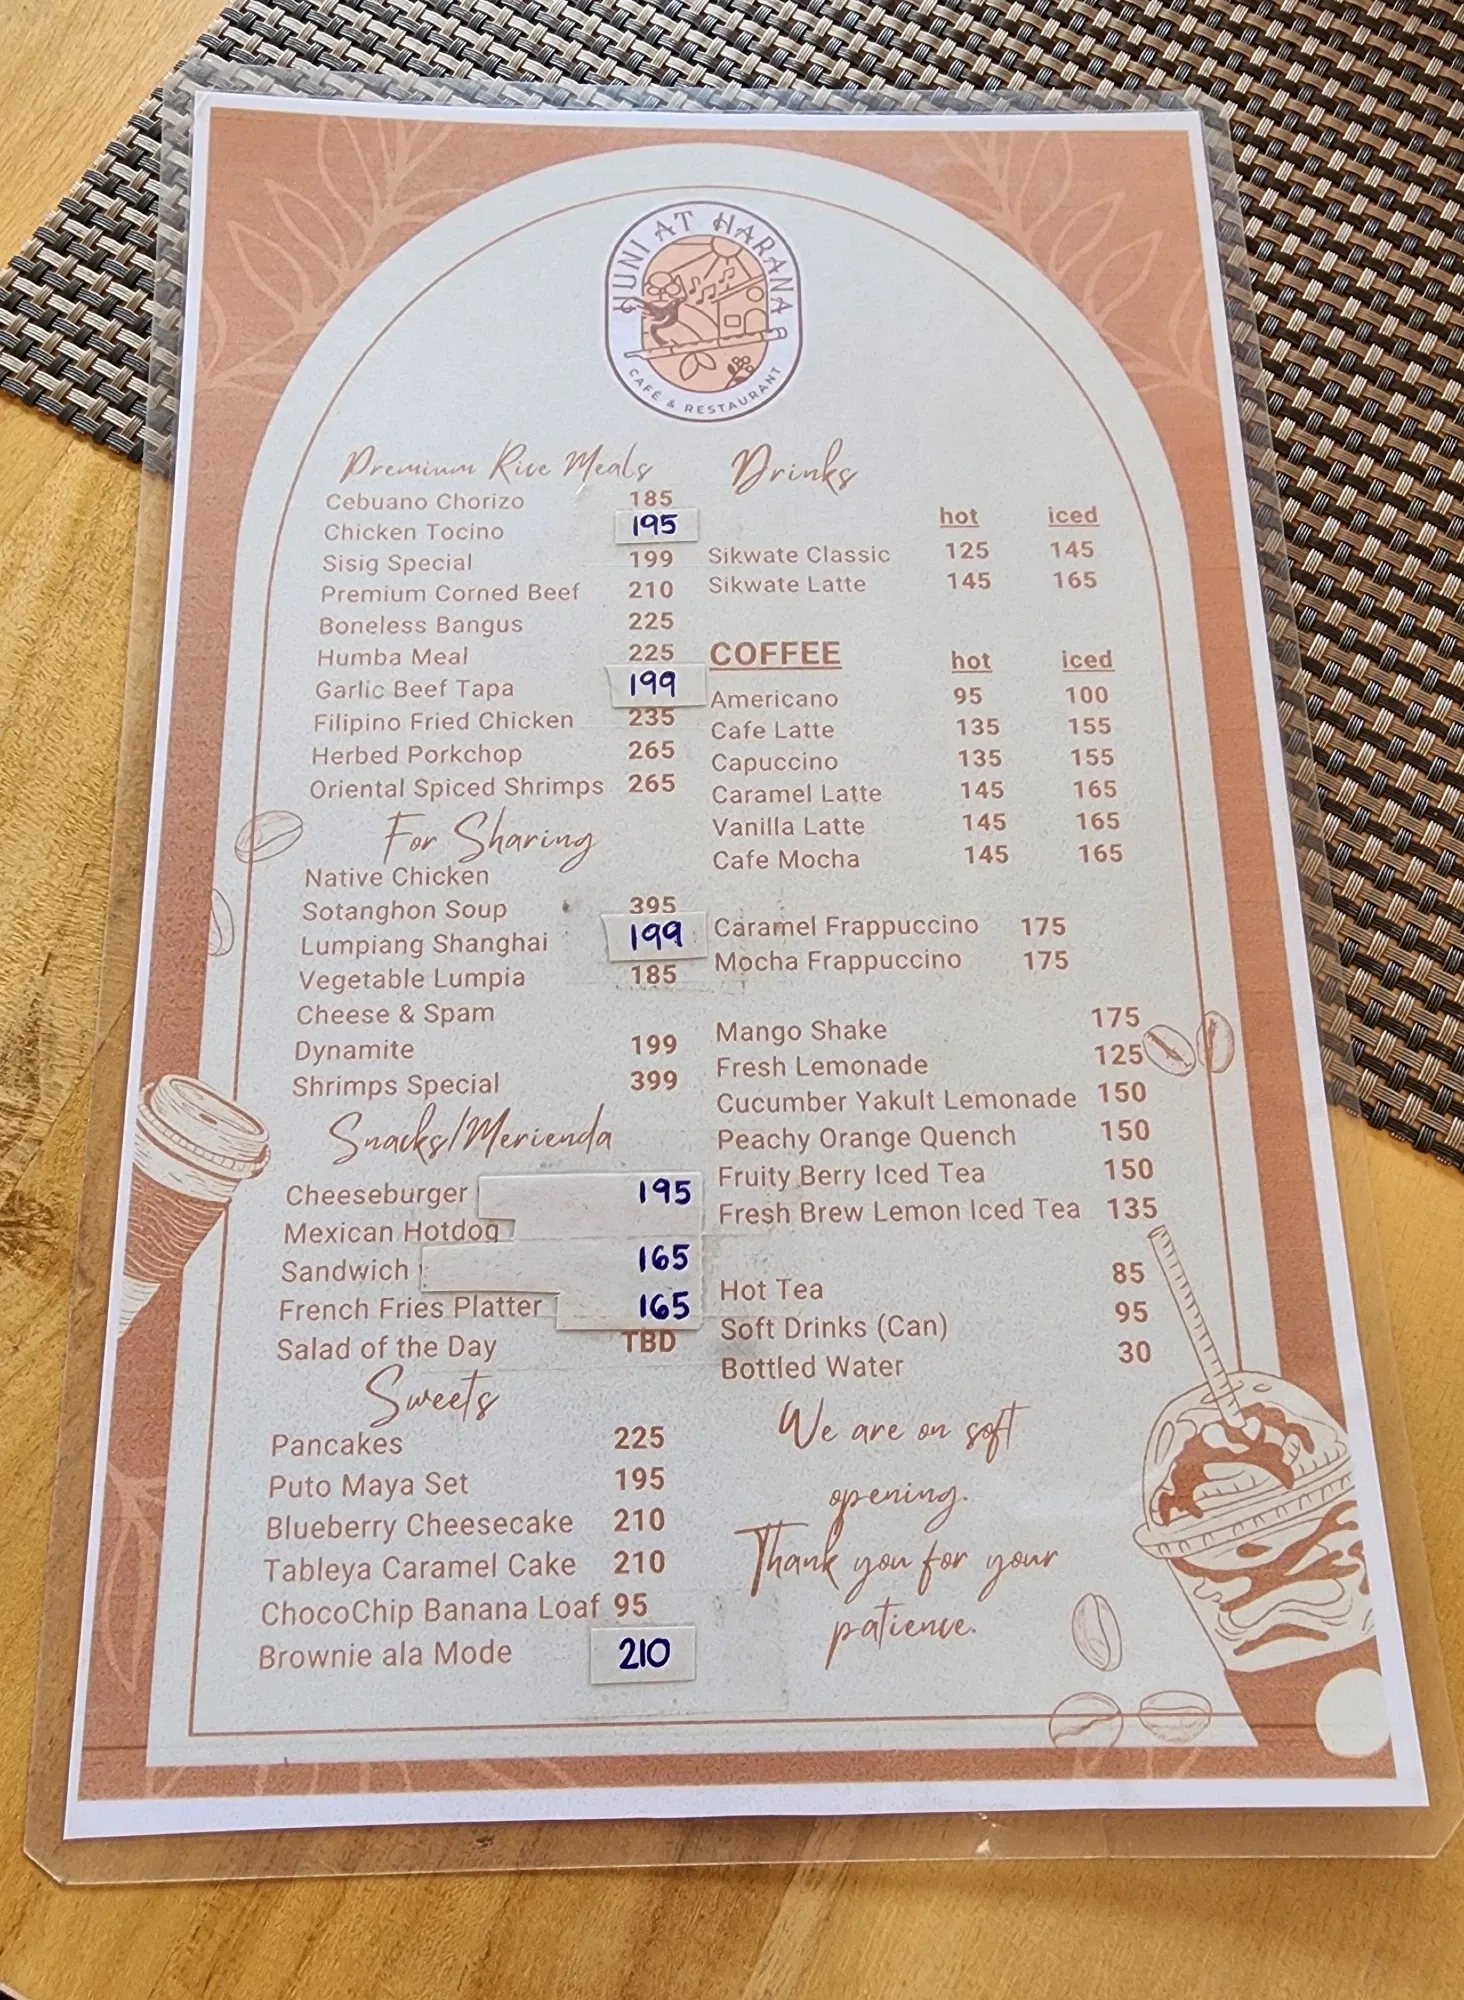 HUNI AT HARANA
CAFE & RESTAURANT
Premium Rice Meals
Cebuano Chorizo 185
Chicken Tocino 195
Sisig Special 199
Premium Corned Beef 210
Boneless Bangus 225
Humba Meal 225
Garlic Beef Tapa 199
Filipino Fried Chicken 235
Herbed Porkchop 265
Oriental Spiced Shrimps 265
For Sharing
Native Chicken
Sotanghon Soup 395
Lumpiang Shanghai 199
Vegetable Lumpia 185
Cheese & Spam
Dynamite 199
Shrimps Special 399
Snacks/Merienda
Cheeseburger 195
Mexican Hotdog
Sandwich 165
French Fries Platter 165
Salad of the Day TBD
Sweets
Pancakes 225
Puto Maya Set 195
Blueberry Cheesecake 210
Tableya Caramel Cake 210
ChocoChip Banana Loaf 95
Brownie ala Mode 210
Drinks
hot iced
Sikwate Classic 125 145
Sikwate Latte 145 165
COFFEE hot iced
Americano 95 100
Cafe Latte 135 155
Capuccino 135 155
Caramel Latte 145 165
Vanilla Latte 145 165
Cafe Mocha 145 165
Caramel Frappuccino 175
Mocha Frappuccino 175
Mango Shake 175
Fresh Lemonade 125
Cucumber Yakult Lemonade 150
Peachy Orange Quench 150
Fruity Berry Iced Tea 150
Fresh Brew Lemon Iced Tea 135
Hot Tea 85
Soft Drinks (Can) 95
Bottled Water 30
We are on soft
opening.
Thank you for your
patience.